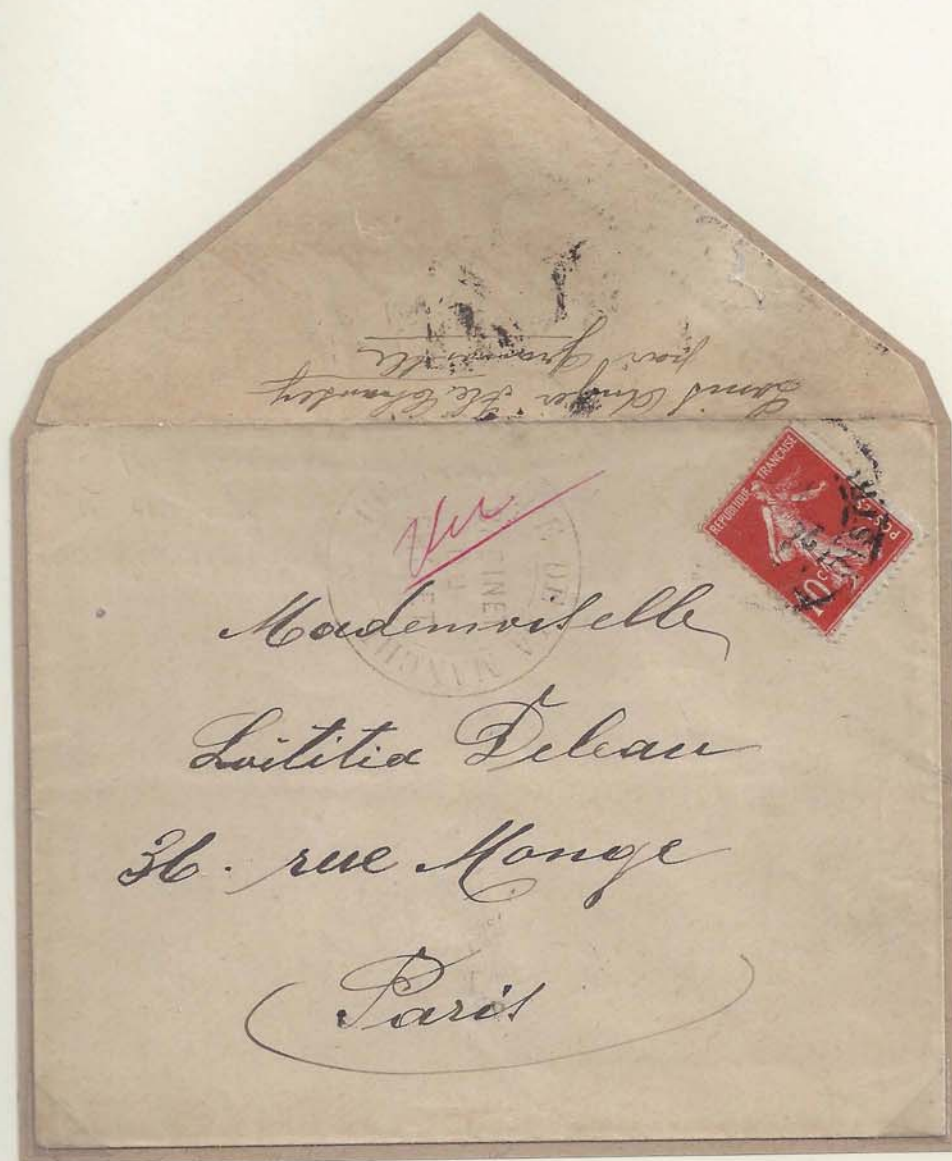 par Granville
Ile Chausey
Vu
REPUBLIQUE FRANÇAISE
POSTES
10 c
Mademoiselle
Loëtitia Deleau
36. rue Monge
Paris